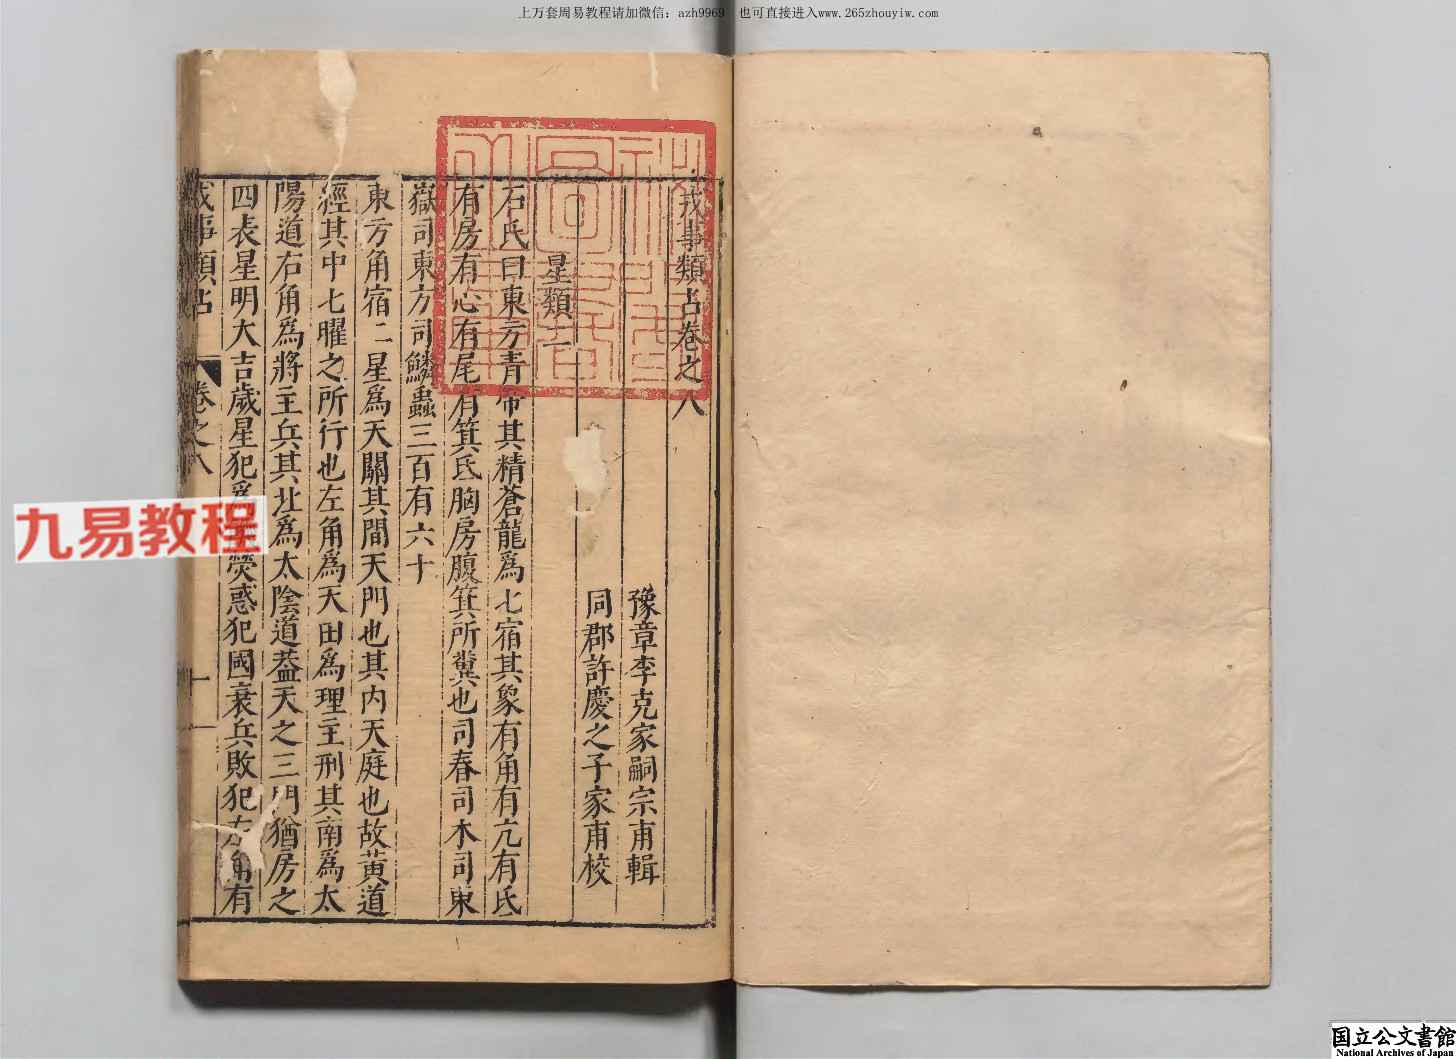 上万套周易教程请加微信：azh9969 也可直接进入www.265zhouyiw.com
戎事類占卷之八
豫章李克家嗣宗甫輯
同郡許慶之子家甫校
星類一
石氏曰東方青帝其精蒼龍爲七宿其象有角有亢有氐
有房有心有尾有箕氐胸房腹箕所糞也司春司木司東
嶽司東方司鱗蟲三百有六十
東方角宿二星爲天關其間天門也其内天庭也故黄道
經其中七曜之所行也左角爲天田爲理主刑其南爲太
陽道右角爲將主兵其北爲太陰道葢天之三門猶房之
四表星明大吉歲星犯爲熒惑犯國衰兵敗犯左角有
戎事類占 卷之八 一
九易教程
国立公文書館
National Archives of Japan